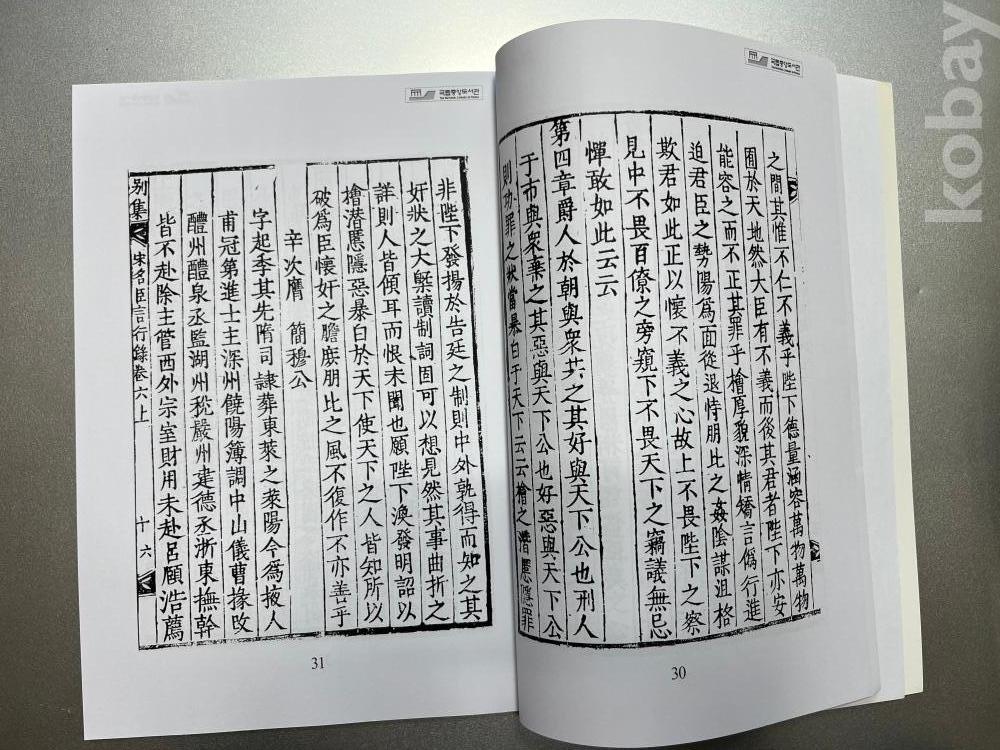 국립중앙도서관
之間其惟不仁不義乎陛下德量涵容萬物萬物
囿於天地然大臣有不義而後其君者陛下亦安
能容之而不正其罪乎檜厚貌深情矯言僞行進
迫君臣之勢陽爲面從退恃朋比之姦陰謀沮格
欺君如此正以懷不義之心故上不畏陛下之察
見中不畏百僚之旁窺下不畏天下之竊議無忌
憚敢如此云云
第四章爵人於朝與衆共之其好與天下公也刑人
于市與衆棄之其惡與天下公也好惡與天下公
則功罪之狀當暴白于天下云云檜之潜慝隱罪
30
국립중앙도서관
非陛下發揚於告廷之制則中外孰得而知之其
奸狀之大槩讀制詞固可以想見然其事曲折之
詳則人皆傾耳而恨未聞也願陛下渙發明詔以
檜潜慝隱惡暴白於天下使天下之人皆知所以
破爲臣懷奸之膽庶朋比之風不復作不亦善乎
辛次膺 簡穆公
字起季其先隋司隷葬東萊之萊陽今爲掖人
甫冠第進士主深州饒陽簿調中山儀曹掾改
醴州醴泉丞監湖州稅嚴州建德丞浙東撫幹
皆不赴除主管西外宗室財用未赴呂頤浩薦
別集 宋名臣言行錄卷六上 十六
31
kobay